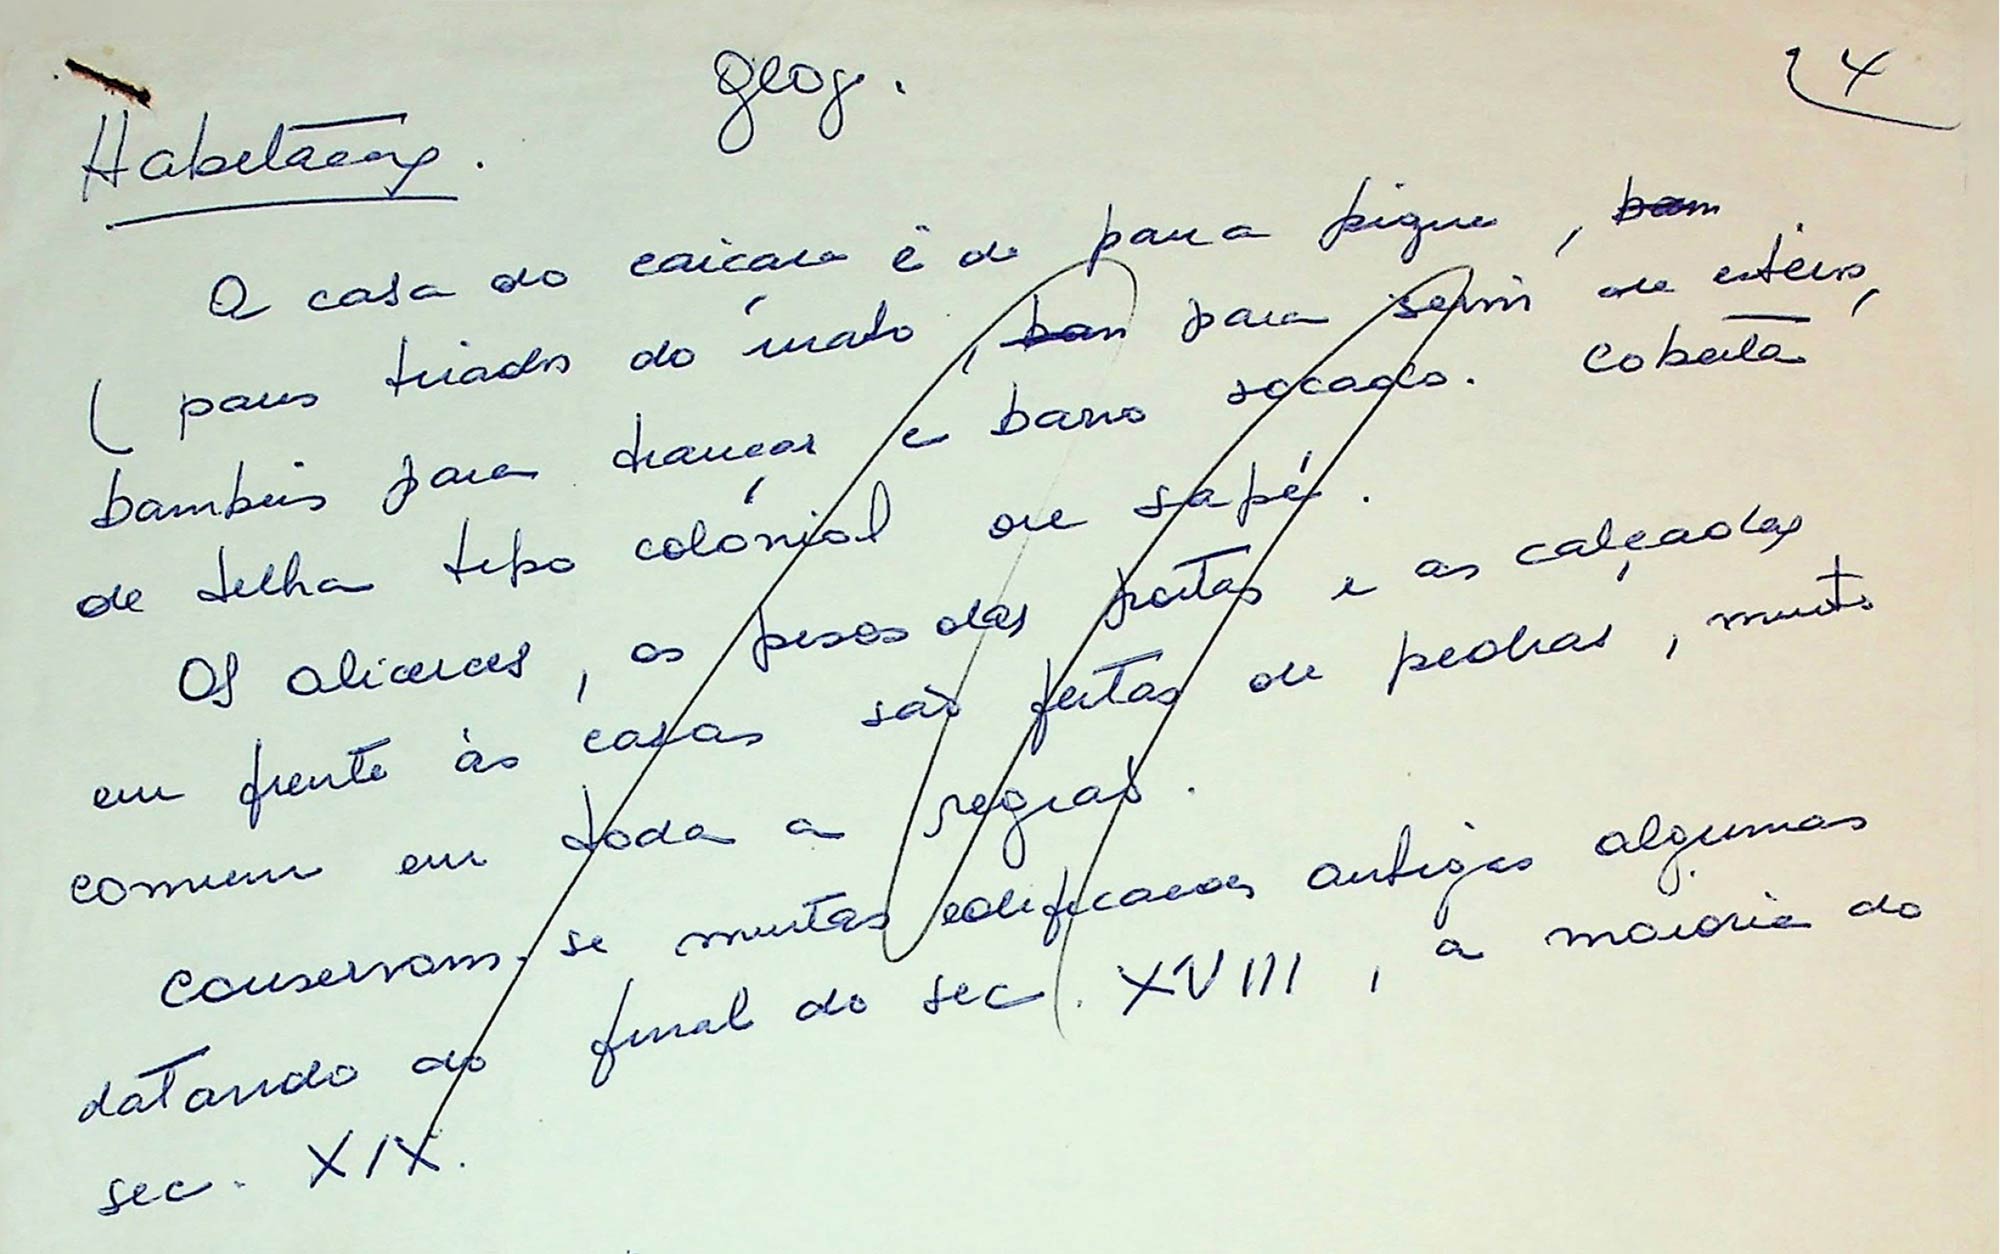 geog. 24
Habitação.
A casa do caiçara é de pau a pique, bam
( paus tirados do mato, bam para servir de esteios,
bambus para trançar e barro socado. Coberta
de telha tipo colónial ou sapé.
Os alicerces, os pisos das portas e as calçadas
em frente às casas são feitas de pedras, muito
comum em toda a região.
Conservam-se muitas edificacoes antigas algumas
datando do final do sec. XVIII, a maioria do
sec. XIX.